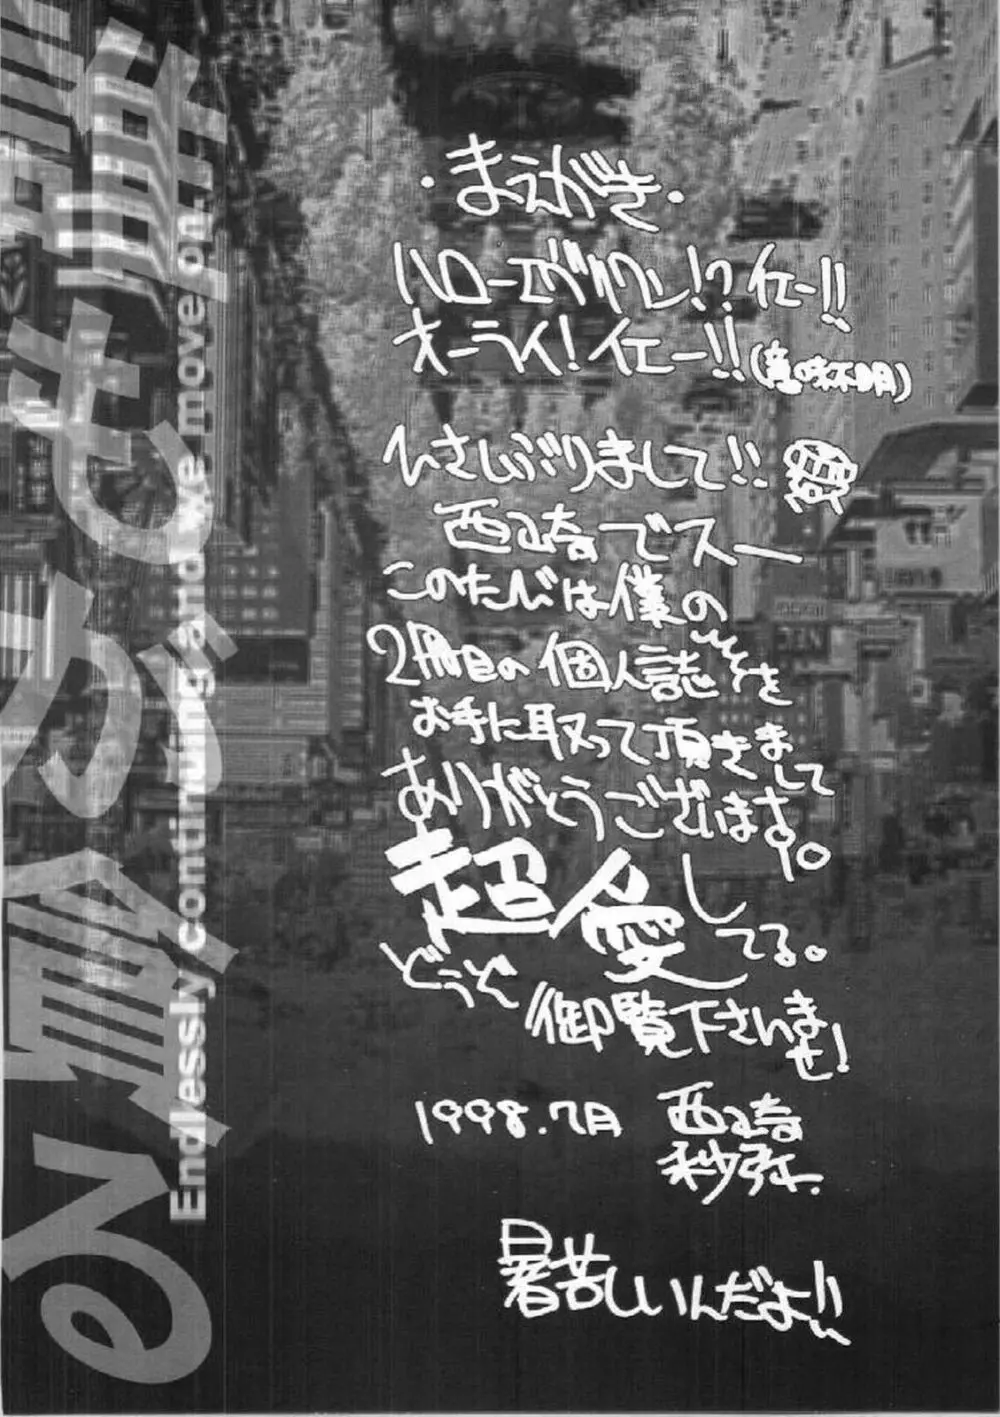 ・まえがき・
ハローエヴリワン!?イエー!!
オーライ!イエー!!(意味不明)
ひさしぶりまして!!
西崎でスー
このたびは僕の
2冊目の個人誌を
お手に取って頂きまして
ありがとうございます。
超愛してる。
どうぞ御覧下さいませ!
1998.7月
暑苦しいんだよ!!
Endlessly continuing and we move on.